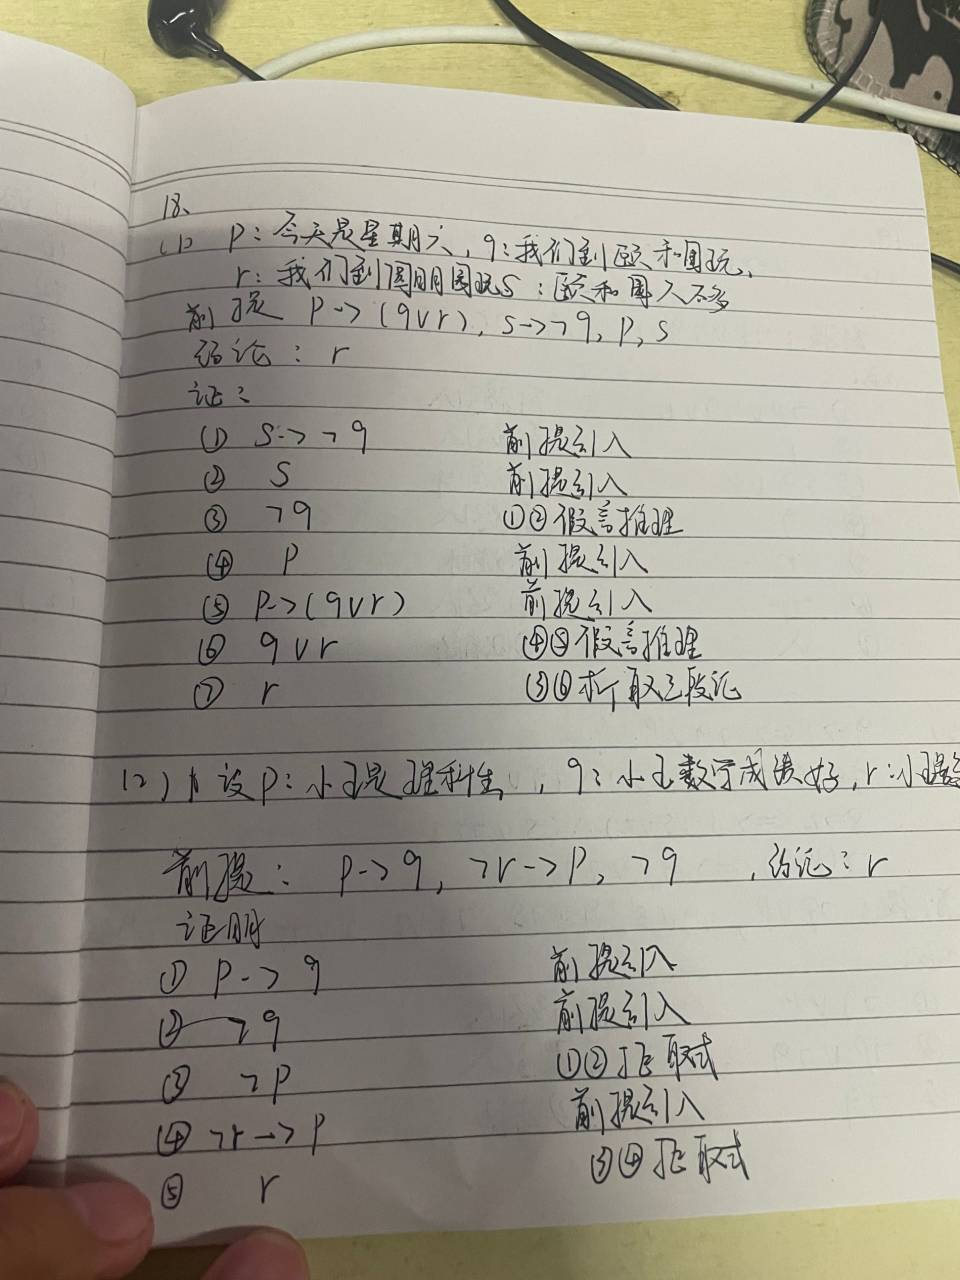 18、
(1) p：今天是星期六，q：我们到颐和园玩、
r：我们到圆明园玩 s：颐和园人不多
前提 p->(q∨r)，s->¬q，p，s
结论：r
证：
① s->¬q 前提引入
② s 前提引入
③ ¬q ①②假言推理
④ p 前提引入
⑤ p->(q∨r) 前提引入
⑥ q∨r ④⑤假言推理
⑦ r ③⑥析取三段论
(2) 设p：小王是理科生，q：小王数学成绩好，r：小王是
前提：p->q，¬r->p，¬q，结论：r
证明
① p->q 前提引入
② ¬q 前提引入
③ ¬p ①②拒取式
④ ¬r->p 前提引入
⑤ r ③④拒取式